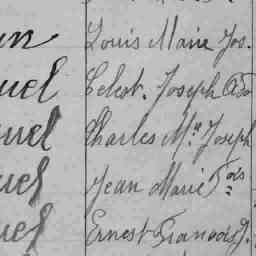 Louis Marie Jos.
uel Célest. Joseph
uel Charles M.ie Joseph
uel Jean Marie Fois
uel Ernest François J.